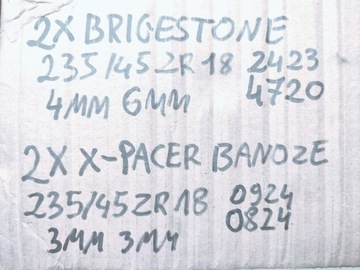 2X BRIGESTONE
235/45ZR18 2423
4MM 6MM 4720
2X X-PACER BANOZE
235/45ZR18 0924
0824
3MM 3MM